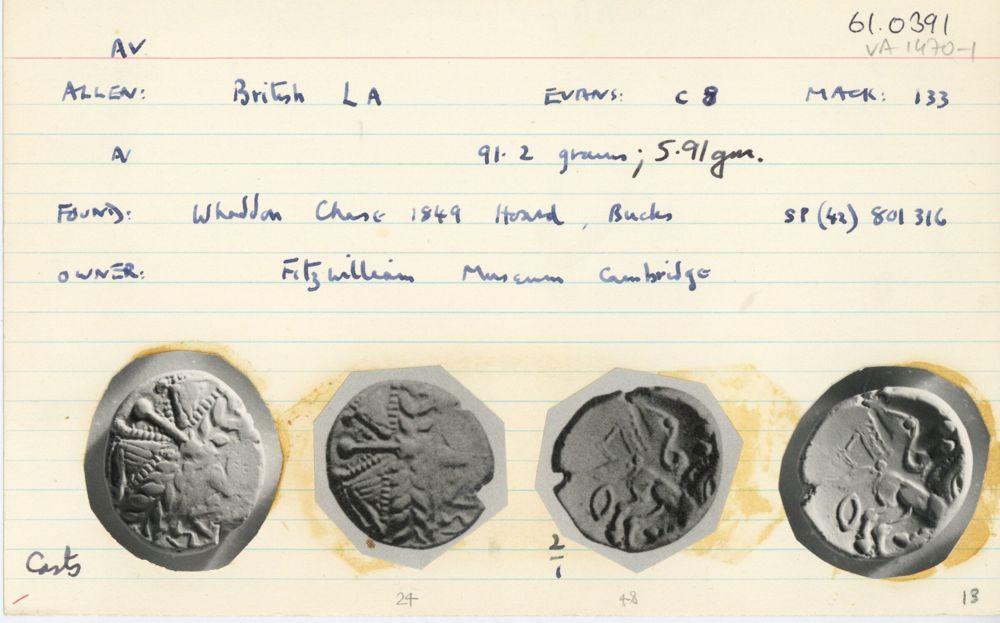 61.0391
VA 1470-1
AV
ALLEN: British LA EVANS: C 8 MACK: 133
N 91.2 grains; 5.91gm.
FOUND: Whaddon Chase 1849 Hoard, Bucks SP (42) 801 316
OWNER: Fitzwilliam Museum Cambridge
Casts
2/1
24 48 13